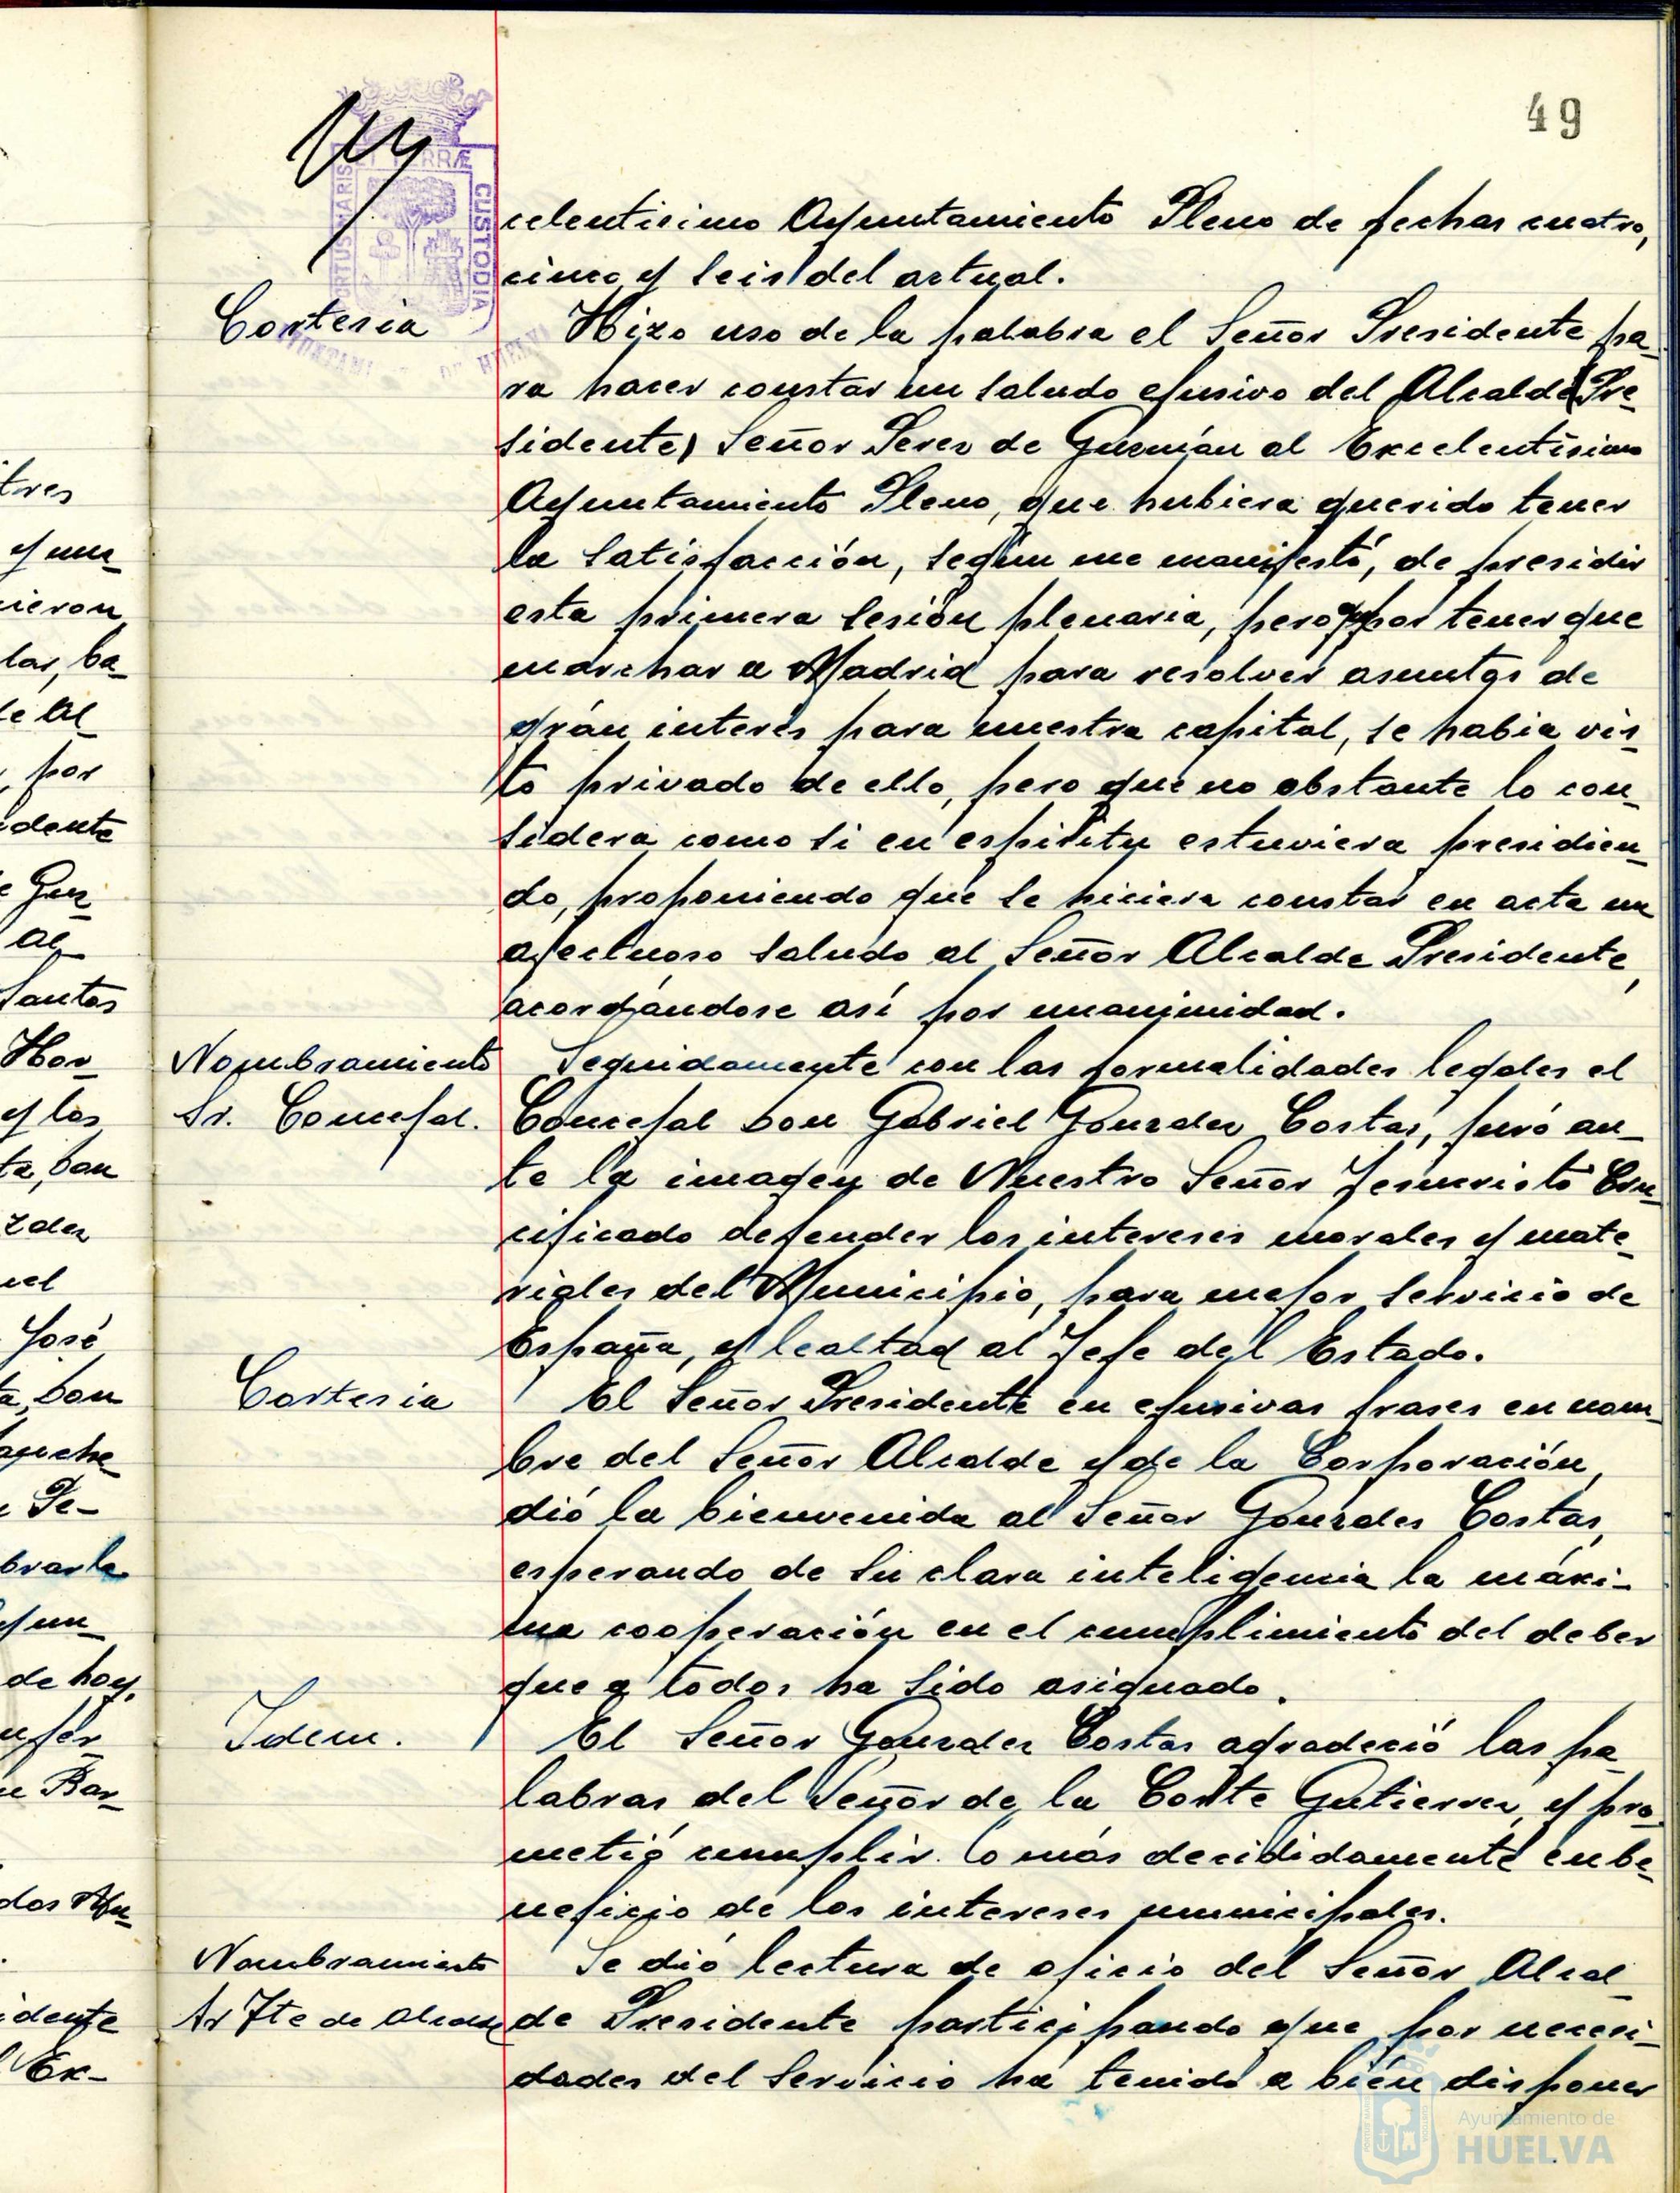 49
PORTUS MARIS ET TERRÆ CUSTODIA
AYUNTAMIENTO DE HUELVA
celentisimo Ayuntamiento Pleno de fechas cuatro,
cinco y seis del actual.
Cortesia
Hizo uso de la palabra el Señor Presidente pa_
ra hacer constar un saludo efusivo del Alcalde (Pre_
sidente) Señor Perez de Guzmán al Excelentísimo
Ayuntamiento Pleno, que hubiera querido tener
la satisfacción, según me manifestó, de presidir
esta primera sesión plenaria, pero por tener que
marchar a Madrid para resolver asuntos de
grán interés para nuestra capital, se habia vis_
to privado de ello, pero que no obstante lo con_
sidera como si en espíritu estuviera presidien_
do, proponiendo que se hiciera constar en acta un
afectuoso saludo al Señor Alcalde Presidente,
acordándose así por unanimidad.
Nombramiento
Sr. Concejal.
Seguidamente con las formalidades legales el
Concejal Don Gabriel Gonzalez Costas, juró an_
te la imagen de Nuestro Señor Jesucristo Cru_
cificado defender los intereses morales y mate_
riales del Municipio, para mejor servicio de
España, y lealtad al Jefe del Estado.
Cortesia
El Señor Presidente en efusivas frases en nom_
bre del Señor Alcalde y de la Corporación,
dió la bienvenida al Señor Gonzales Costas,
esperando de su clara inteligencia la máxi_
ma cooperación en el cumplimiento del deber
que a todos ha sido asignado.
Idem.
El Señor Gonzalez Costas agradeció las pa_
labras del Señor de la Corte Gutierrez, y pro_
metió cumplir lo más decididamente en be_
neficio de los intereses municipales.
Nombramiento
Sr Tte de Alcalde
Se dió lectura de oficio del Señor Alcal_
de Presidente participando que por necesi_
dades del servicio ha tenido a bién disponer
Ayuntamiento de
HUELVA
tres
y un_
cieron
lar, ba_
de Al_
, por
idente
e Guz_
al_
Santos
Hor_
y los
ta, Don
zalez
uel
José
ta, Don
anche_
e Pe_
brarla
y un_
de hoy,
e Bar_
dos Mu_
idente
l Ex_